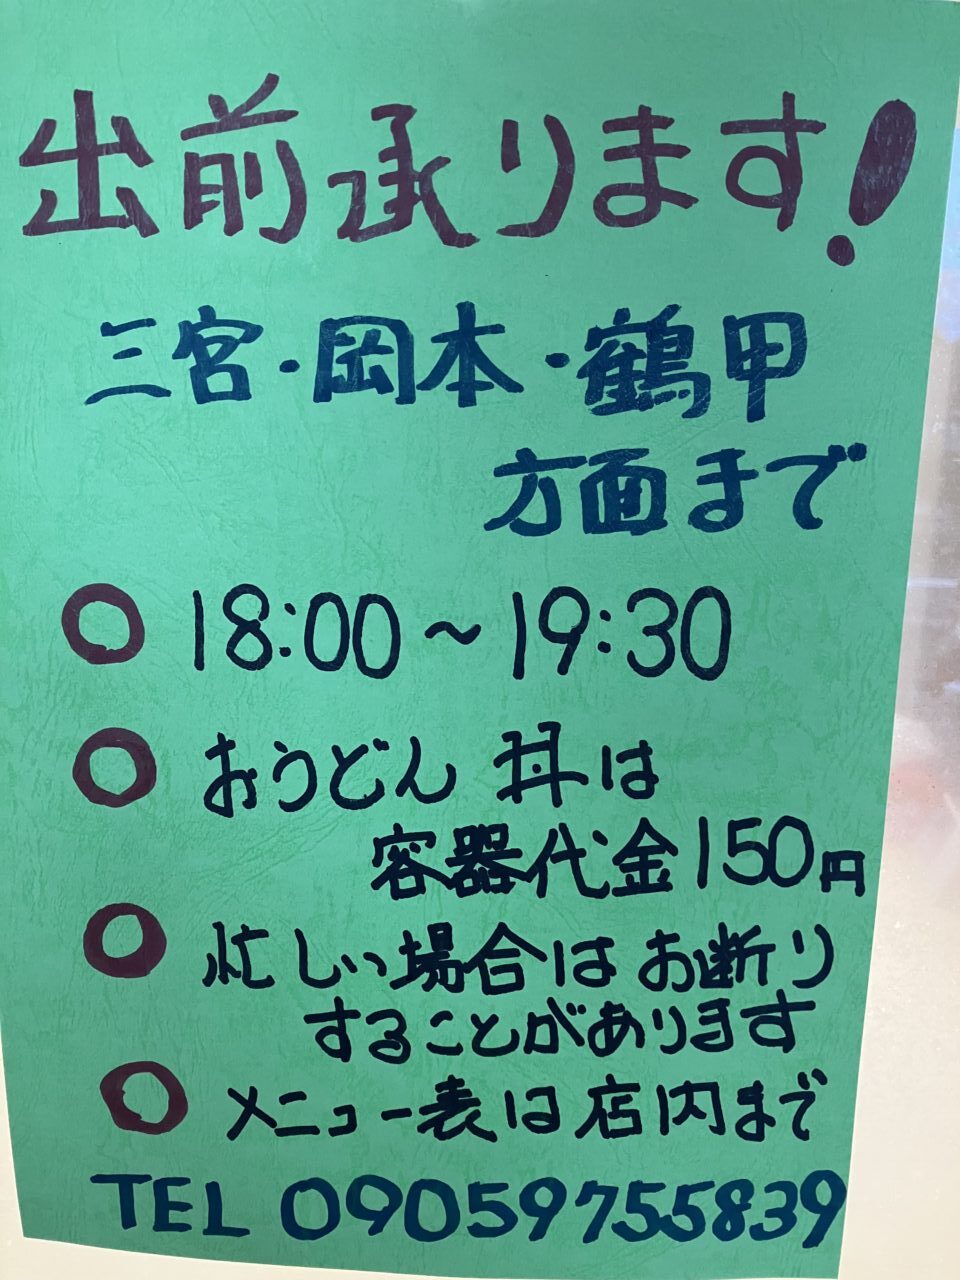 出前承ります!
三宮・岡本・鶴甲
方面まで
○ 18:00～19:30
○ おうどん 丼は
容器代金150円
○ 忙しい場合はお断り
することがあります
○ メニュー表は店内まで
TEL 09059755839